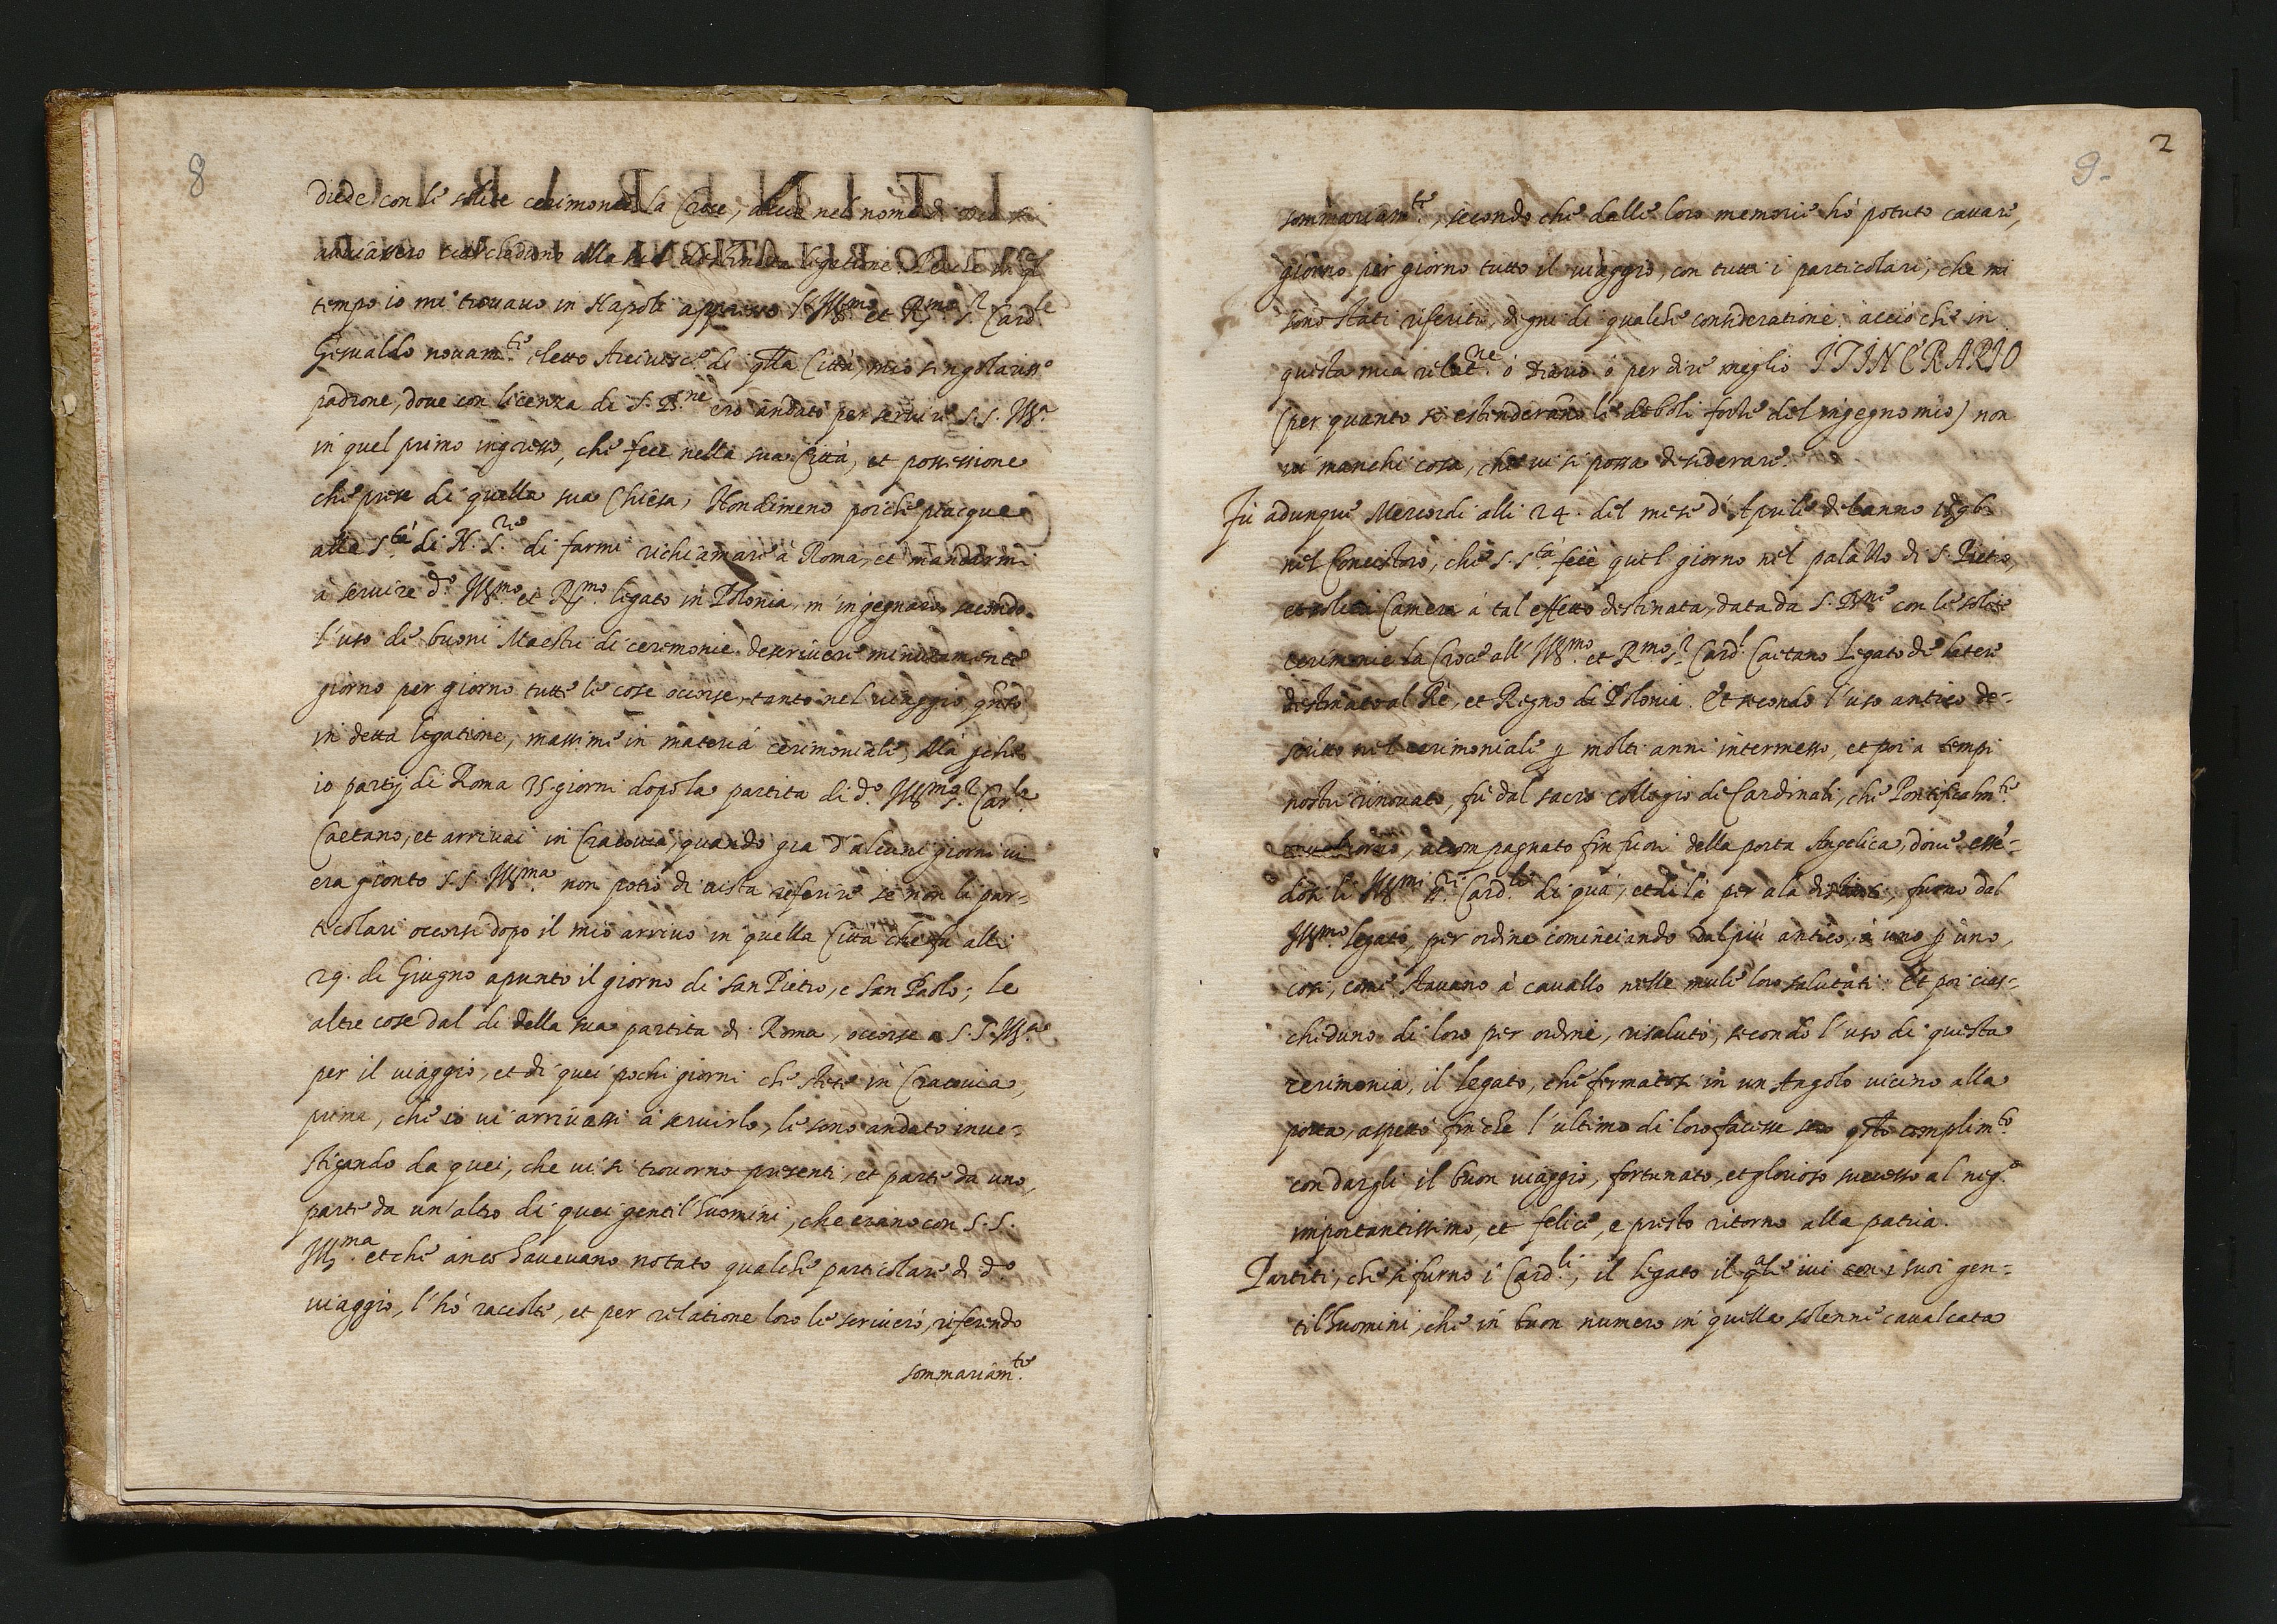 8
diede con le solite cerimonie la Croce, acciò nel nome di
tempo io mi trovavo in Napoli appresso l'Ill.mo et R.mo S.r Card.le
Gesualdo novam.te eletto Arcivesc.o di q.lla Città, mio singolariss.o
padrone, dove con licenza di S. B.ne ero andato per servire S. S. Ill.a
in quel primo ingresso, che fece nella sua Città, et possessione
che prese di quella sua Chiesa, Nondimeno poiche piacque
alla S.tà di N. S.re di farmi richiamare à Roma, et mandarmi
à servire d.o Ill.mo et R.mo legato in Polonia, m'ingegnarò secondo
l'uso de buoni Maestri di ceremonie descrivere minutamente
giorno per giorno tutte le cose occorse, tanto nel viaggio, q.nto
in detta legatione, massime in materia cerimoniale, Mà p.che
io partij di Roma 35. giorni dopò la partita di d.o Ill.mo S.r Car.le
Caetano, et arrivai in Cracovia, quando già d'alcuni giorni vi
era gionto S. S. Ill.ma non potrò di vista referire se non li par=
ticolari occorsi dopo il mio arrivo in quella Città che fu alli
29. di Giugno apunto il giorno di san Pietro, e san Paolo; le
altre cose dal di della sua partita di Roma, occorse a S. S. Ill.a
per il viaggio, et di quei pochi giorni che stette in Cracovia,
prima, che io vi arrivassi à servirlo, le sono andato inve=
stigando da quei, che vi si trovorno presenti, et parte da uno,
parte da un'altro di quei gentil'huomini, che erano con S. S.
Ill.ma et che anco havevano notato qualche particolare di d.o
viaggio, l'hò raccolte, et per relatione loro le scriverò, riferendo
sommariam.te
2
9.
sommariam.te, secondo che dalle loro memorie hò potuto cavare,
giorno per giorno tutto il viaggio, con tutti i particolari, che mi
sono stati riferiti, degni di qualche consideratione. acciò che in
questa mia relat.ne ò diario ò per dire meglio ITINERARIO
(per quanto si estenderanno le deboli forze del ingegno mio) non
vi manchi cosa, che vi si possa desiderare.
Fù adunque Mercordi alli 24. del mese d'Aprile del anno 1596.
nel Concistoro, che S. S.tà fece quel giorno nel palazzo di S. Pietro,
et solita Camera à tal effetto destinata, data da S. B.ne con le solite
cerimonie la Croce all' Ill.mo et R.mo S.r Card.l Caetano Legato de latere
destinato al Rè, et Regno di Polonia. Et secondo l'uso antico de=
scritto nel cerimoniale p molti anni intermesso, et poi a tempi
nostri rinovato, fù dal sacro collegio de Cardinali, che Pontificalm.te
accompagnato fin fuori della porta Angelica, dove essẽ=
dosi li Ill.mi S.ri Card.li di quà, et di là per ala distinti, furno dal
Ill.mo legato, per ordine cominciando dal più antico, à uno p uno,
così, come stavano à cavallo nelle mule loro salutati. Et poi cias=
cheduno di loro per ordine, risalutò, secondo l'uso di questa
cerimonia, il legato, che fermatosi in un Angolo vicino alla
porta, aspettò finche l'ultimo di loro facesse seco q.sto complim.to
con dargli il buon viaggio, fortunato, et glorioso successo al neg.o
importantissimo, et felice, e presto ritorno alla patria.
Partiti, che si furno i Card.li, il legato il q.ale ivi con i suoi gen=
til'huomini, che in buon numero in quella solenne cavalcata